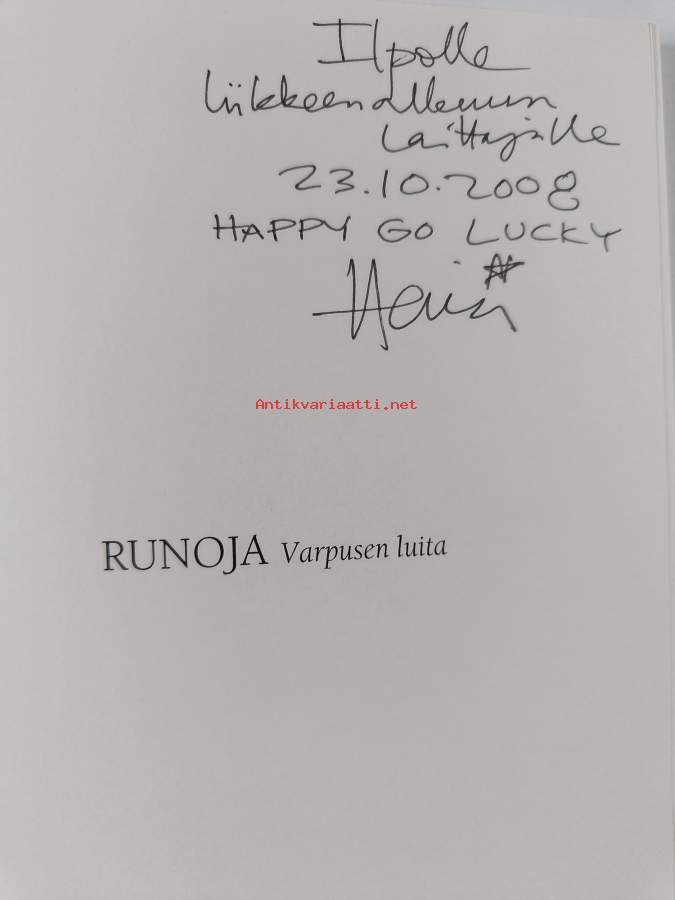 Ilpolle
liikkeenalkuun
laittajalle
23.10.2008
HAPPY GO LUCKY
Antikvariaatti.net
RUNOJA Varpusen luita